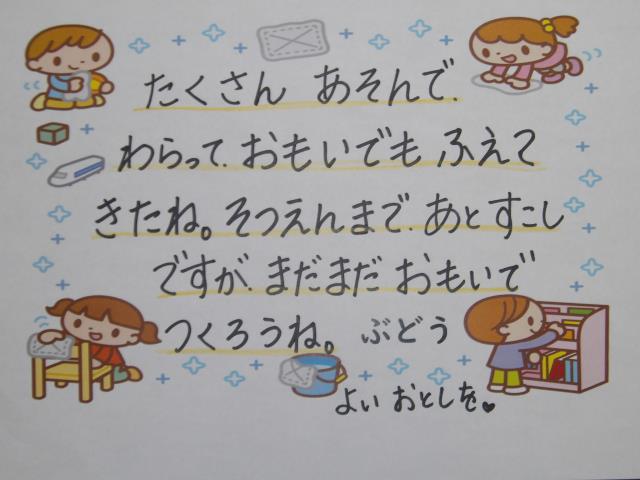 たくさん あそんで、
わらって、おもいでも ふえて
きたね。そつえんまで、あとすこし
ですが、まだまだ おもいで
つくろうね。 ぶどう
よい おとしを♥